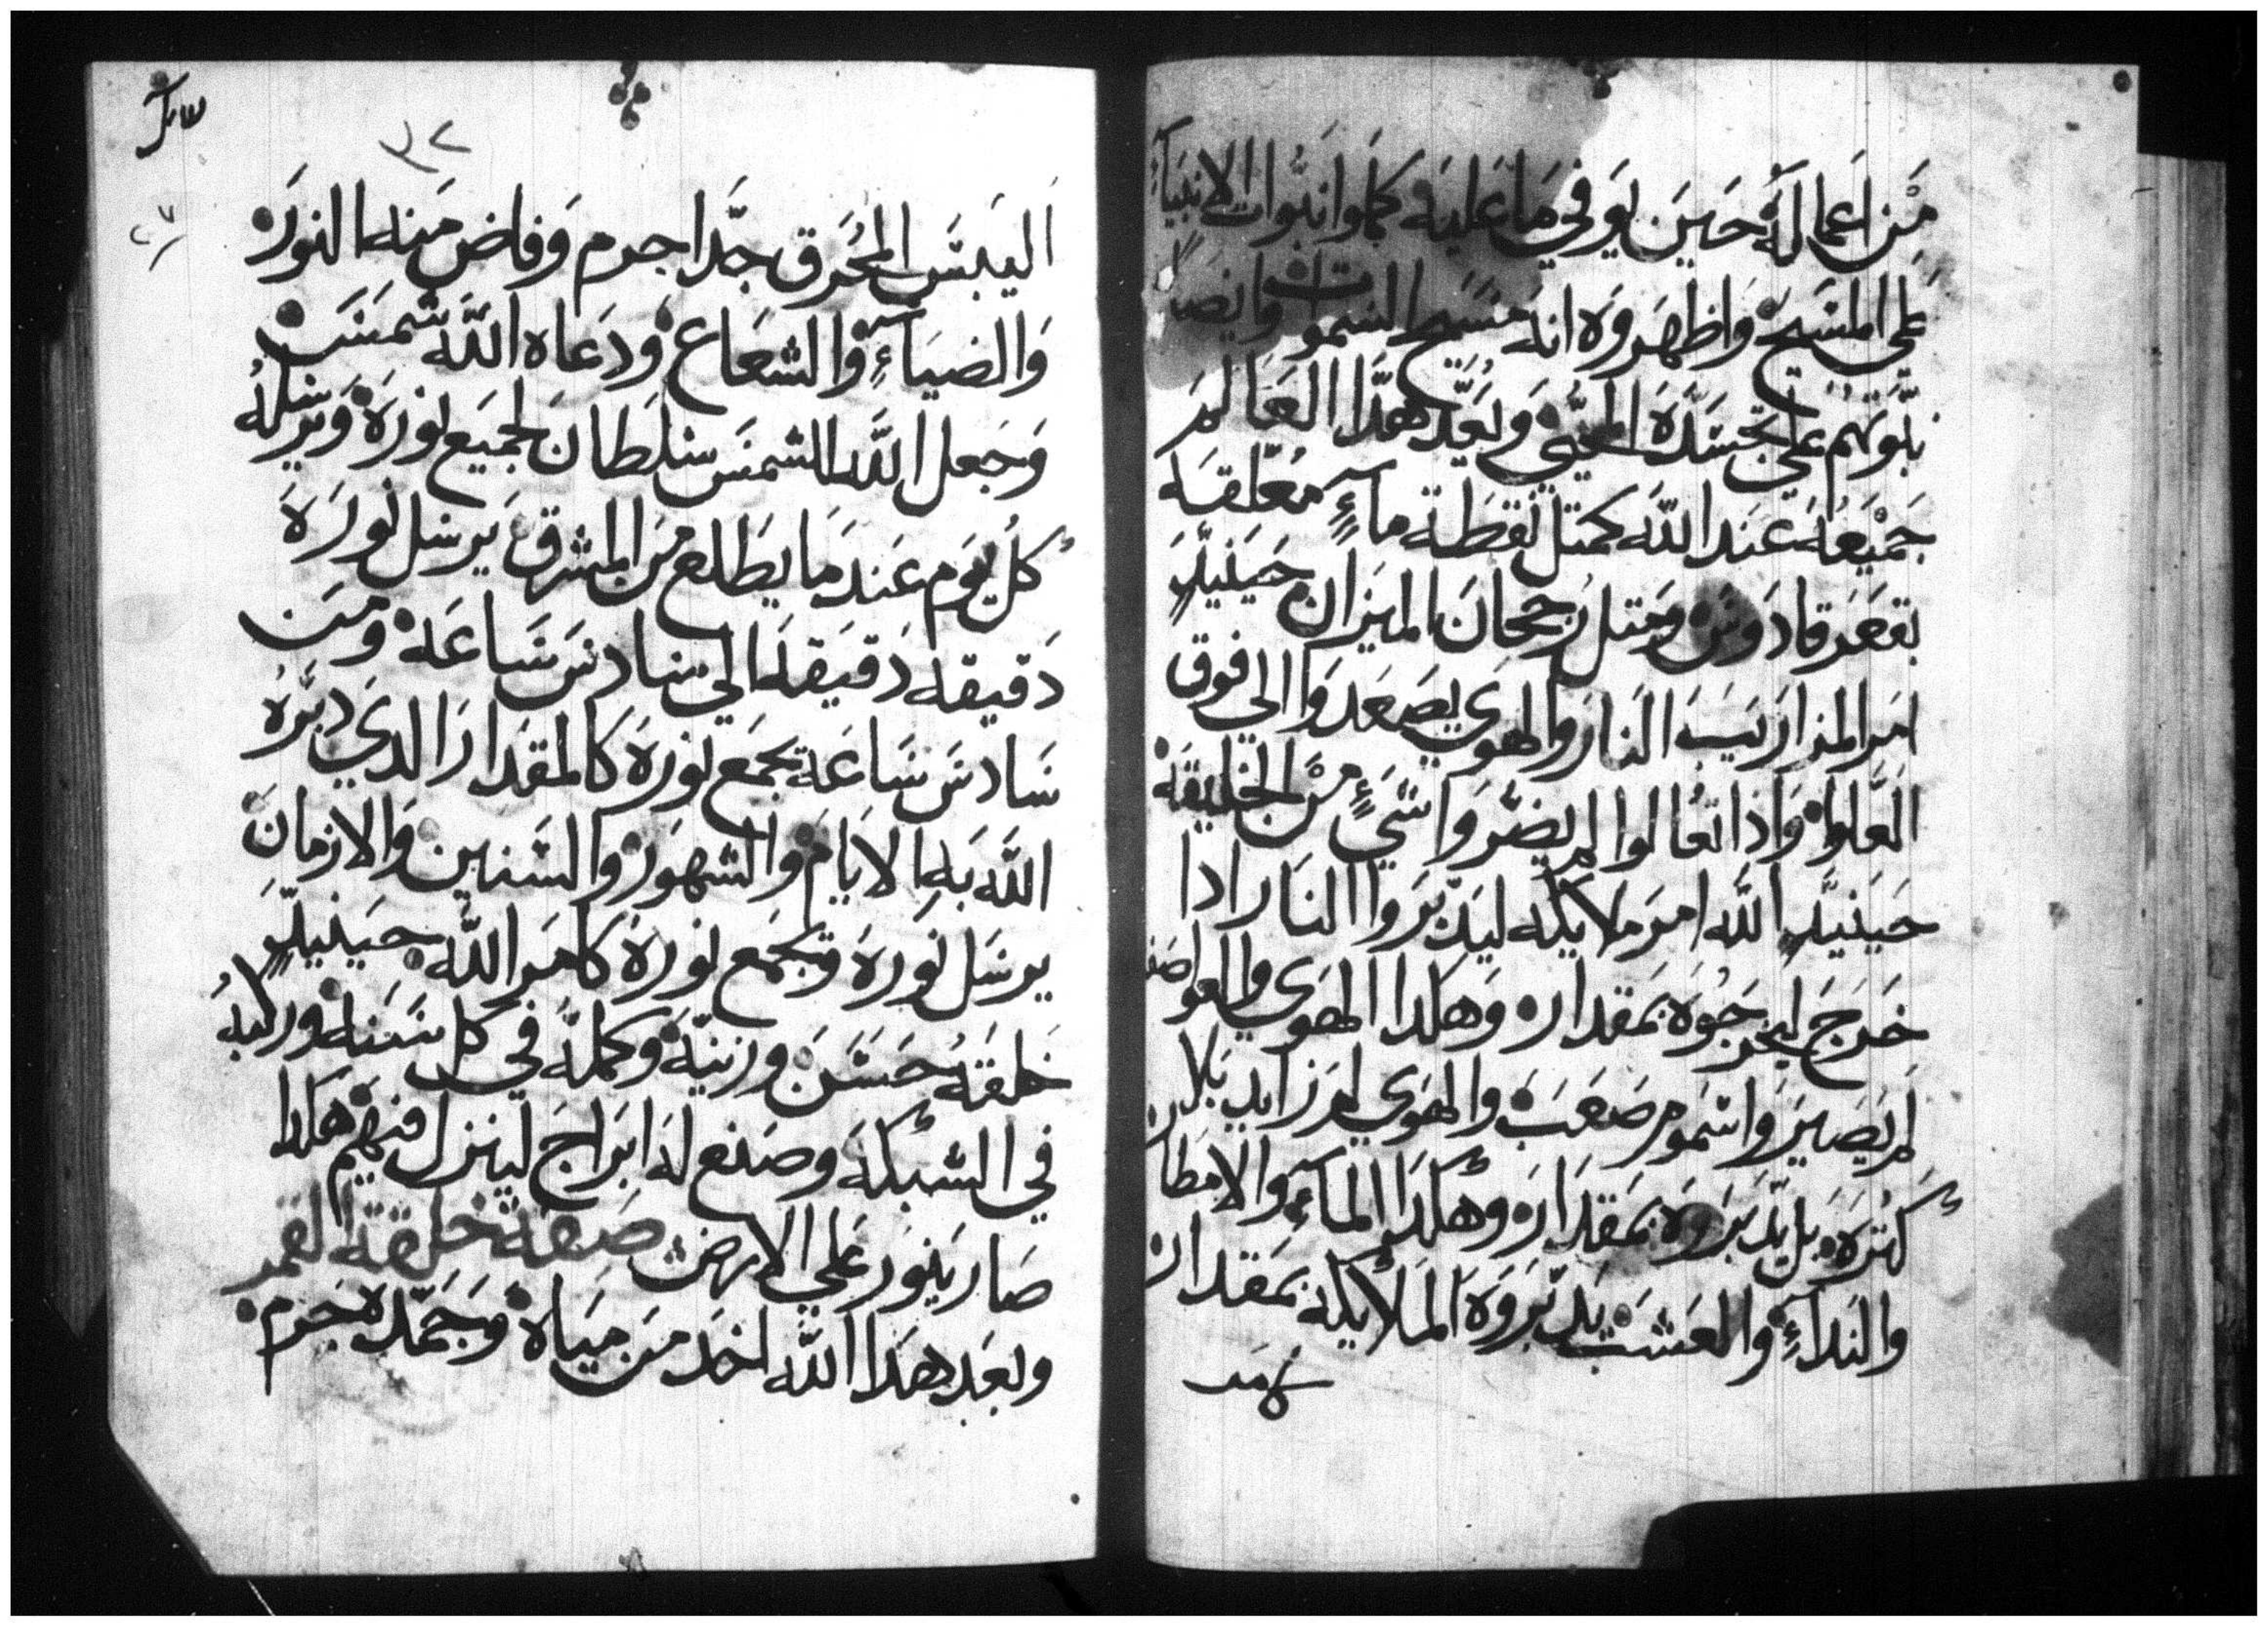 من اعماله حين يوفي ما عليه كما وانبوات الانبياء
على المسيح واظهروه انه مسيح السموات وايضا
نبوتهم على تجسده المحيي وبعد هذا العالم
جميعه عند الله كمتل نقطة ماء معلقه
بقعر قادوس ومتل رجحان الميزان حينيذ
امر المزاريب النار والهوى يصعدوا الي فوق
العلو واذا تعالوا لم يضروا شيء من الخليقه
حينيذ الله امر ملايكه ليدبروا النار اذا
خرج ليخرجوه بمقدار وهكدا الهوى والعواصف
لم يصيروا سموم صعب والهوى لم زايد بلا
كتره بل يدبروه بمقداره وهكدا الماء والامطار
والنداء والعشب يدبروه الملايكه بمقدار
اليبس المحرق جدا جرم وفاض منه النور
والضياء والشعاع ودعاه الله شمس
وجعل الله الشمس سلطان لجميع نوره ويرسله
كل يوم عند ما يطلع من المشرق يرسل نوره
دقيقه دقيقه الي سادس ساعه ومن
سادس ساعة يجمع نوره كالمقدار الدي دبره
الله به الايام والشهور والسنين والازمان
يرسل نوره وتجمع نوره كامر الله حينيذ
خلقه حسن وزينة وكمله في كل سنه وركبه
في الشبكه وصنع له ابراج لينزل فيهم هكدا
صار ينور علي الارض صفة خلقة القمر
وبعد هدا الله اخد من مياه وجمده جرم